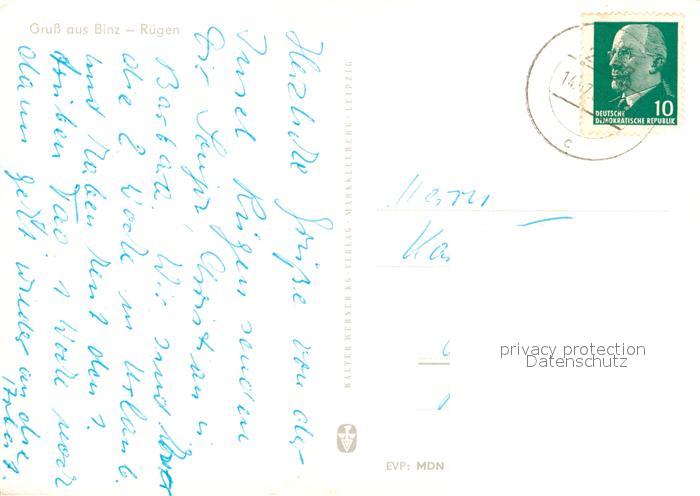 Gruß aus Binz – Rügen
Herzliche Grüße von der
Insel Rügen senden
Dir Sonja, Christian u.
Barbara. Wir sind hier
die 2. Woche in Urlaub
und haben heut den 1.
trüben Tag. 1 Woche noch
dann geht's wieder an die
Arbeit.
WALTER WERNER KG · VERLAG · MARKKLEEBERG · LEIPZIG
14.
DEUTSCHE
DEMOKRATISCHE REPUBLIK
10
c
Herrn
privacy protection
Datenschutz
EVP: MDN